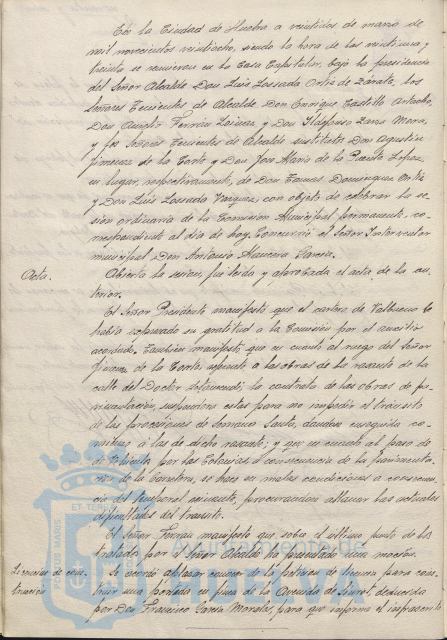 En la Ciudad de Huelva a veintidos de marzo de
mil novecientos veintiocho, siendo la hora de las veintiuna y
treinta se reunieron en la Casa Capitular, bajo la presidencia
del Señor Alcalde Don Luis Lossada Ortiz de Zárate, los
Señores Tenientes de Alcalde Don Enrique Castillo
Don Aurelio Ferrán y Don Ildefonso Zarza Mora,
y los Señores Tenientes de Alcalde sustitutos Don Agustin
Jimenez de la Corte y Don José María de la Puente López,
en lugar, respectivamente, de Don Tomas Dominguez Ortiz
y Don Luis Lossada Vazquez, con objeto de celebrar la se
sion ordinaria de la Comision Municipal permanente co-
rrespondiente al día de hoy. Concurrió el Señor Interventor
municipal Don Antonio García.
Acta. Abierta la sesion, fué leída y aprobada el acta de la an
terior.
El Señor Presidente manifestó que el cartero de Valbueno le
había expresado su gratitud a la Comisión por el auxilio
acordado. También manifestó que en cuanto al ruego del Señor
Jimenez de la Corte referente a las obras de la rasante de la
calle del Doctor la contrata de las obras de pa-
vimentación, suspendera estas para no impedir el tránsito
de las procesiones de Semana Santa, dandose enseguida co-
mienzo a las de dicha rasante; y que en cuanto al paso de
vehículos por las Colonias a consecuencia de la pavimenta-
ción de la Carretera, se hace en malas condiciones a consecuen
cia del temporal reinante, procurarian allanar las actuales
dificultades del transito.
El Señor Ferrán manifestó que sobre el ultimo punto de los
tratados por el Señor Alcalde ha presentado una mocion.
Licencias de cons
trucción Se acordó aplazar conocer de la peticion de licencia para cons
truir una portada en finca de la Avenida de deducida
por Don Francisco García Morales, para que informe el infrascrito
PORTUS MARIS ET TERRAE
Ayuntamiento de
HUELVA